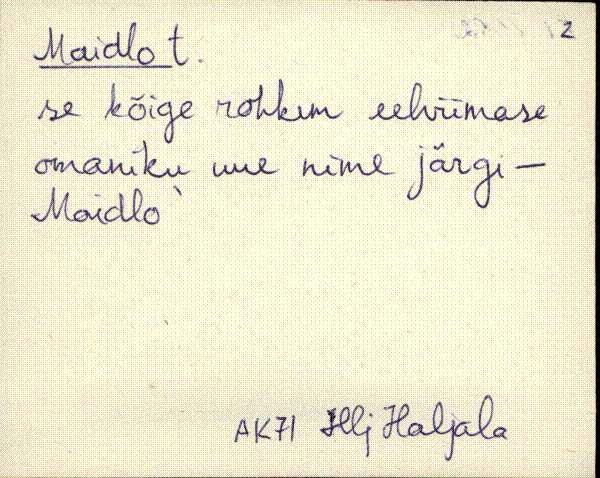 2
Maidlo t.
se kõige rohkem eelviimase
omaniku uue nime järgi —
Maidlo
AK71 Hlj Haljala